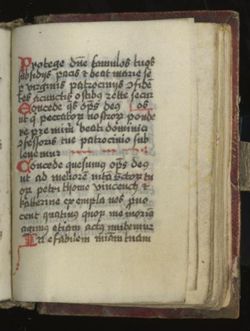 Protege dne famulos tuos
subsidijs pacis & beate marie se
p virginis patrocinijs cofide
tes a cunctis hostibus redde secur
Concede qs ops deus
ut q peccator nostror ponde
re premim beati dominici
cofessoris tui patrocinio sub
levemur
Concede quesumus ops deus
ut ad meliore vita sctor tu
or petri thome vincencij &
katherine exempla nos pro
vocent quatinus quor memoria
agimus etiam actus imitemur